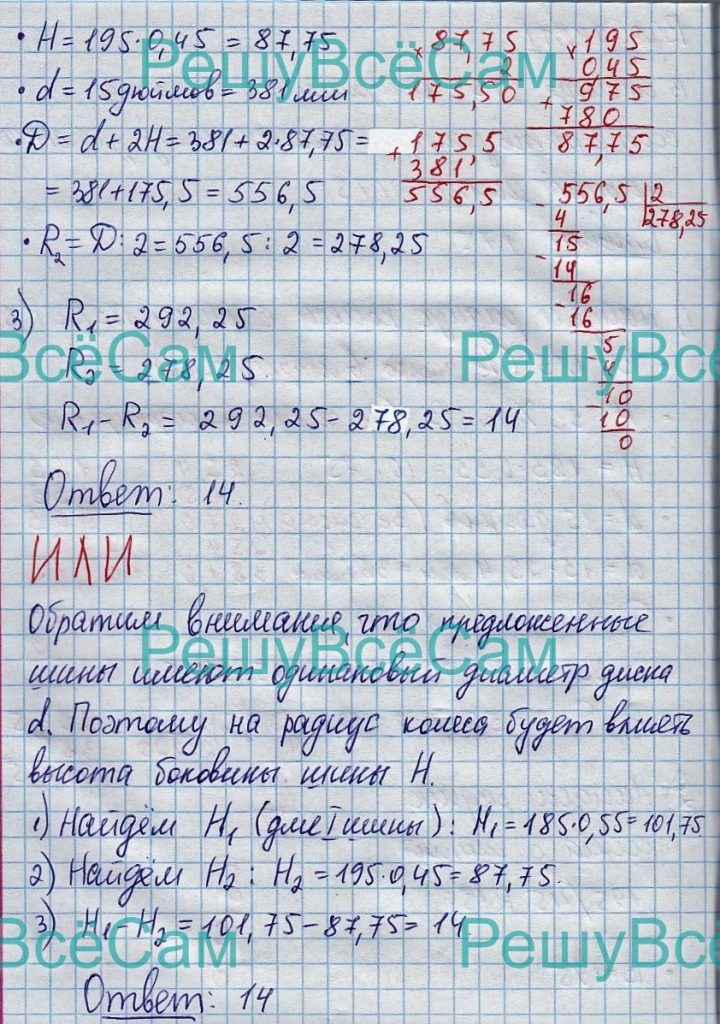 • H = 195·0,45 = 87,75
• d = 15 дюймов = 381 мм
• D = d + 2H = 381 + 2·87,75 =
= 381 + 175,5 = 556,5
• R₂ = D : 2 = 556,5 : 2 = 278,25
× 87,75
2
175,50
+ 175,5
381,
556,5
× 195
0,45
+ 975
780
87,75
- 556,5 | 2
4 278,25
15
- 14
16
- 16
5
- 4
10
- 10
0
3) R₁ = 292,25
R₂ = 278,25
R₁ - R₂ = 292,25 - 278,25 = 14
Ответ: 14.
ИЛИ
Обратим внимание, что предложенные
шины имеют одинаковый диаметр диска
d. Поэтому на радиус колеса будет влиять
высота боковины шины H.
1) Найдём H₁ (для I шины): H₁ = 185·0,55 = 101,75
2) Найдём H₂: H₂ = 195·0,45 = 87,75.
3) H₁ - H₂ = 101,75 - 87,75 = 14
Ответ: 14
РешуВсёСам
ВсёСам
РешуВсё
РешуВсёСам
ВсёСам
РешуВсё